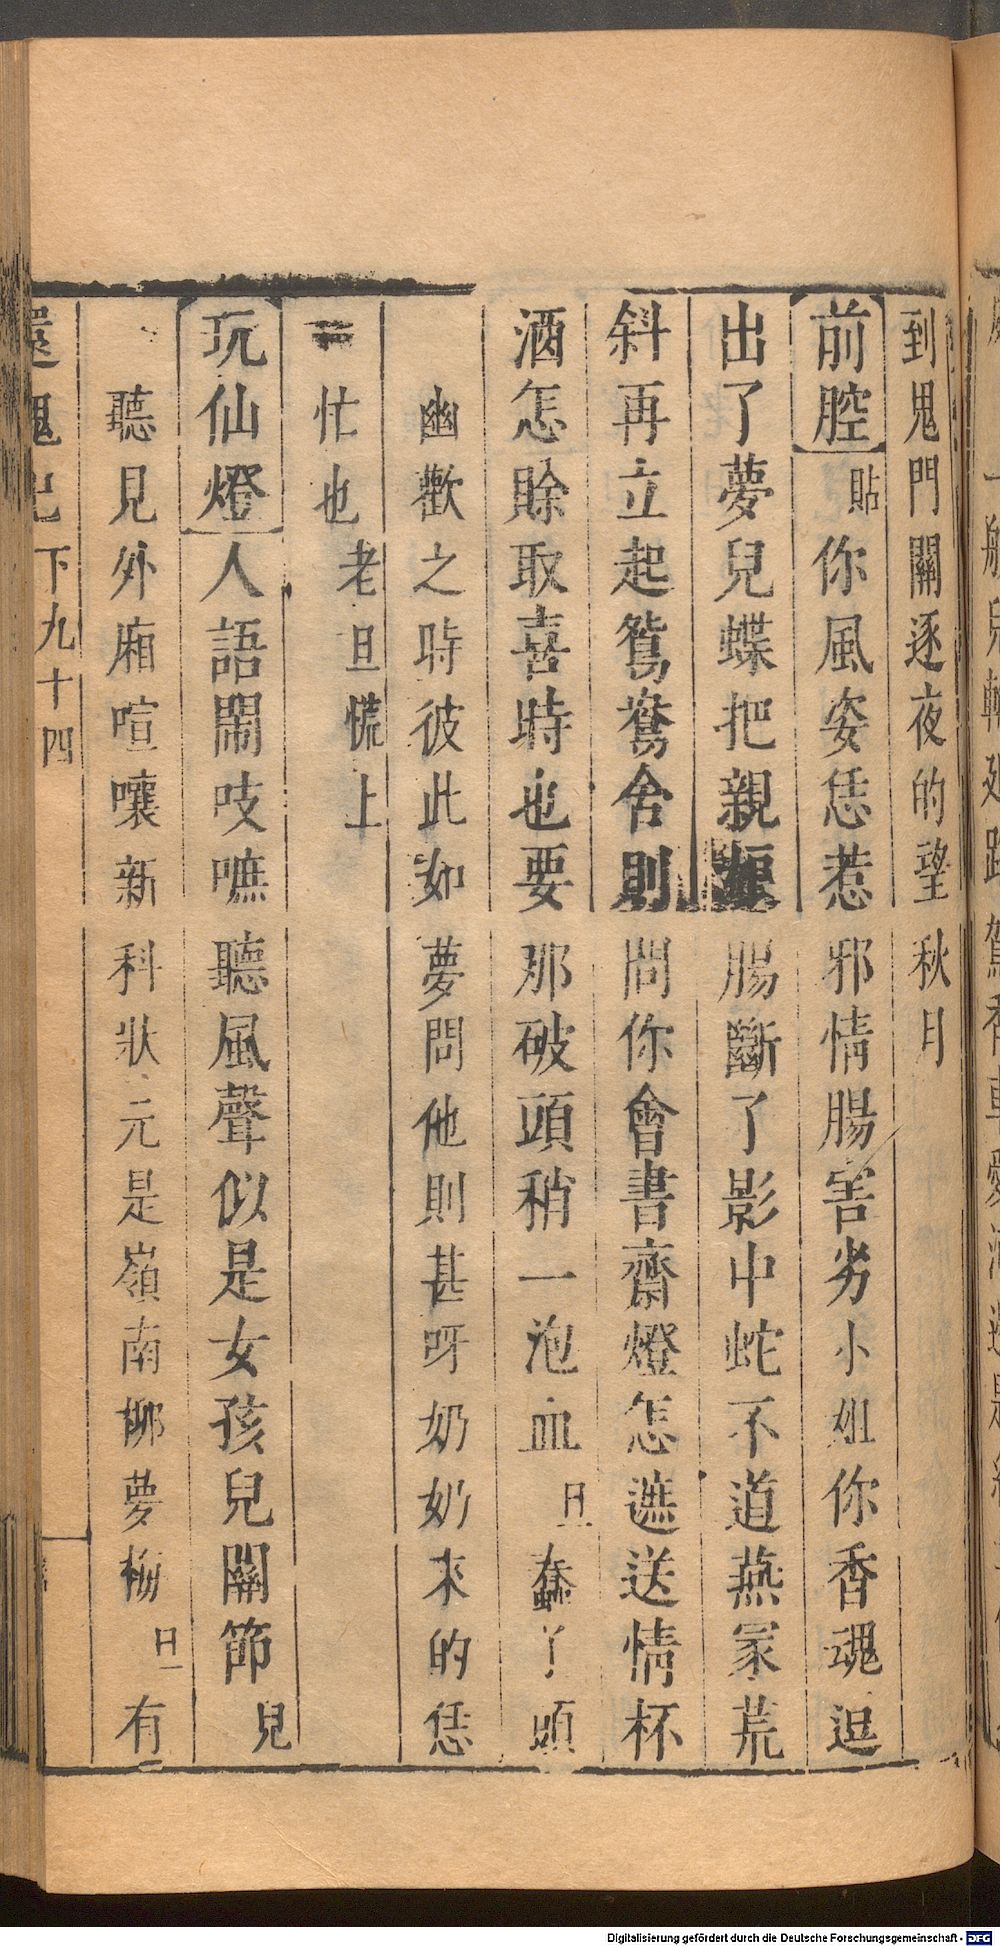 到鬼門關逐夜的望秋月
前腔貼你風姿恁惹邪情腸害劣小姐你香魂逗
出了夢兒蝶把親娘腸斷了影中蛇不道燕冢荒
斜再立起鴛鴦舍則問你會書齋燈怎遮送情杯
酒怎賒取喜時也要那破頭稍一泡血旦蠢丫頭
幽歡之時彼此如夢問他則甚呀奶奶來的恁
忙也老旦慌上
玩仙燈人語鬧吱嘛聽風聲似是女孩兒關節兒
聽見外廂喧嚷新科狀元是嶺南柳夢梅旦有
還魂記下九十四
Digitalisierung gefördert durch die Deutsche Forschungsgemeinschaft - DFG